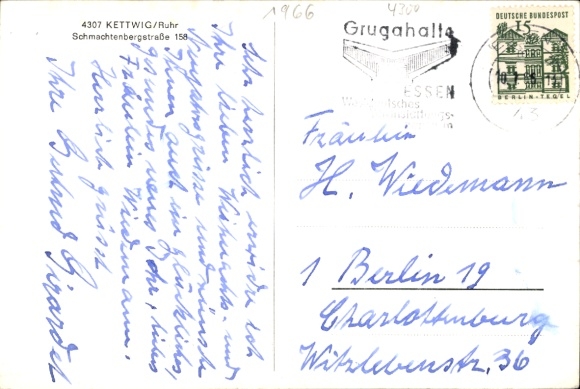 4307 KETTWIG/Ruhr
Schmachtenbergstraße 158
1966
4300
Sehr herzlich erwidre ich
Ihre lieben Weihnachts- und
Neujahrsgrüsse und wünsche
Ihnen auch ein glückliches,
gesundes neues Jahr, liebes
Fräulein Wiedemann.
Herzlich grüsst
Ihre Girardet
Grugahalle
ESSEN
DEUTSCHE BUNDESPOST
15
BERLIN-TEGEL
43
Fräulein
H. Wiedemann
1 Berlin 19
Charlottenburg
Witzlebenstr. 36